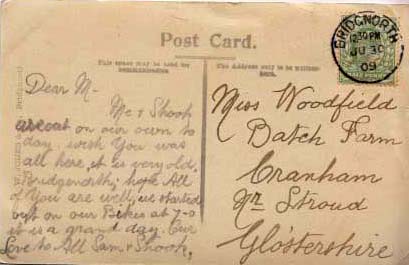 Post Card.
This space may be used for
communication
The Address only to be written
here.
BRIDGNORTH
12.30 PM
JU 30
09
Dear M-
Me & Shook
are out on our own to
day, wish you was
all here, it is very old,
Bridgenorth, hope All
of you are well, we started
out on our Bikes at 7-0
it is a grand day. Our
Love to All Sam & Shook,
Miss Woodfield
Batch Farm
Cranham
Nr Stroud
Glostershire